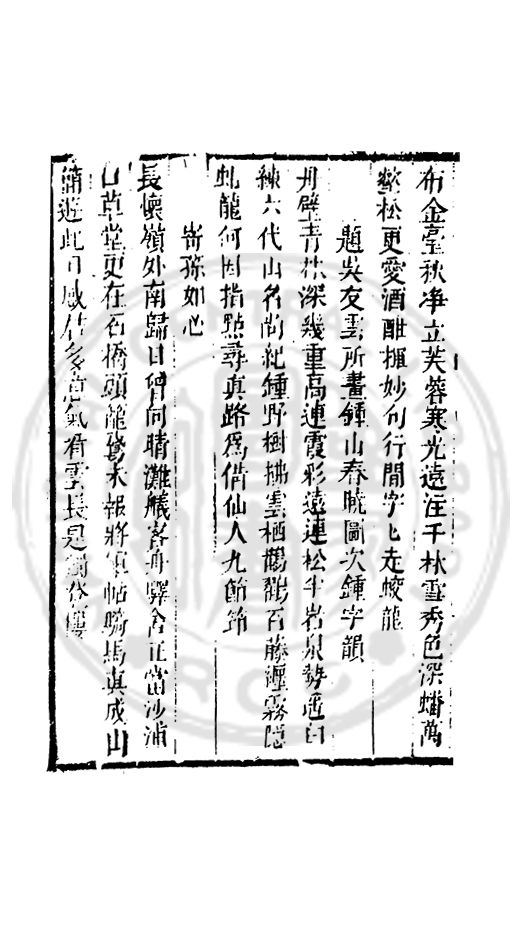 布金臺秋净立芙蓉寒光遠注千林雪秀色深蟠萬
壑松更愛酒酣揮妙句行間字匕走蛟龍
題吳友雲所畫鍾山春曉圖次鍾字韻
丹壁青林深幾重高連霞彩遠連松半岩泉勢垂白
練六代山名尚紀鍾野樹拂雲栖鸛鶴石藤纏霧隱
虬龍何因指點尋真路爲借仙人九節筇
寄孫如心
長懷嶺外南歸日何向晴灘艤客舟驛舍正當沙浦
口草堂更在石橋頭籠鵞未報將軍帖騎馬真成山
簡遊此日感君多意氣看雲長是獨登樓